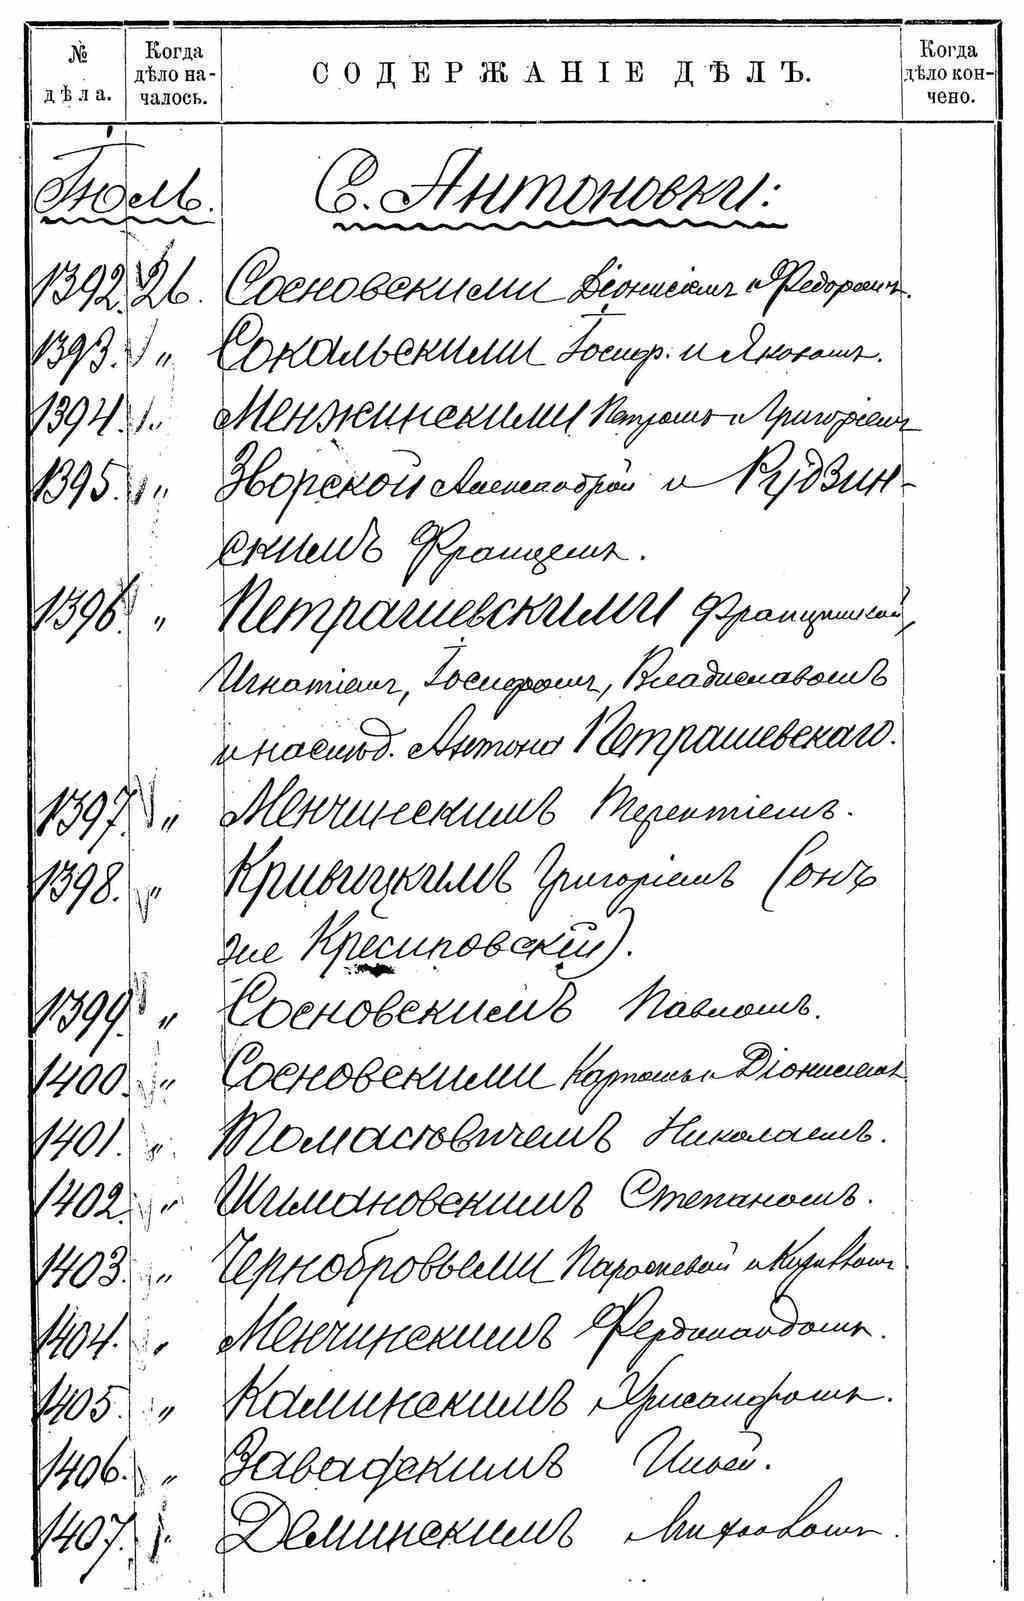 № дѣла. Когда дѣло началось. СОДЕРЖАНІЕ ДѢЛЪ. Когда дѣло кончено.
Іюль. С. Антоновки:
1392. 26. Сосновскими Діонисіемъ и Федоромъ.
1393. " Сокальскими Іосиф. и Яковомъ.
1394. " Менжинскими Петромъ и Григоріемъ
1395. " Зворской Александрой и Рудзин-
скимъ Францемъ.
1396. " Петрашевскими Францишкой,
Игнатіемъ, Іосифомъ, Владиславомъ
и наслѣд. Антона Петрашевскаго.
1397. " Менчинскимъ Терентіемъ.
1398. " Кривицкимъ Григоріемъ (онъ
же Кресиповскій).
1399. " Сосновскимъ Павломъ.
1400. " Сосновскими Карпомъ и Діонисіемъ
1401. " Томасовичемъ Николаемъ.
1402. " Шимановскимъ Степаномъ.
1403. " Чернобровыми Параскевой и
1404. " Менчинскимъ Фердинандомъ.
1405. " Каминскимъ Хрисанфомъ.
1406. " Завадскимъ Ильей.
1407. " Деминскимъ